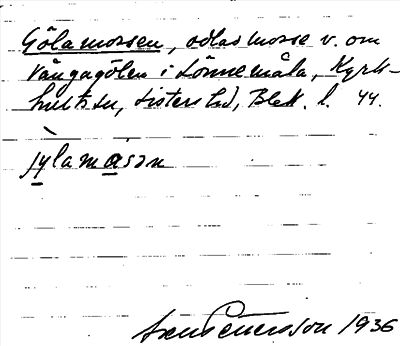 Gölamossen, odlas mosse v. om
Vångagölen i Lönnemåla, Kyrk-
hults sn, Listers hd, Blek. l. 44.
jylamåsən
Pettersson 1936